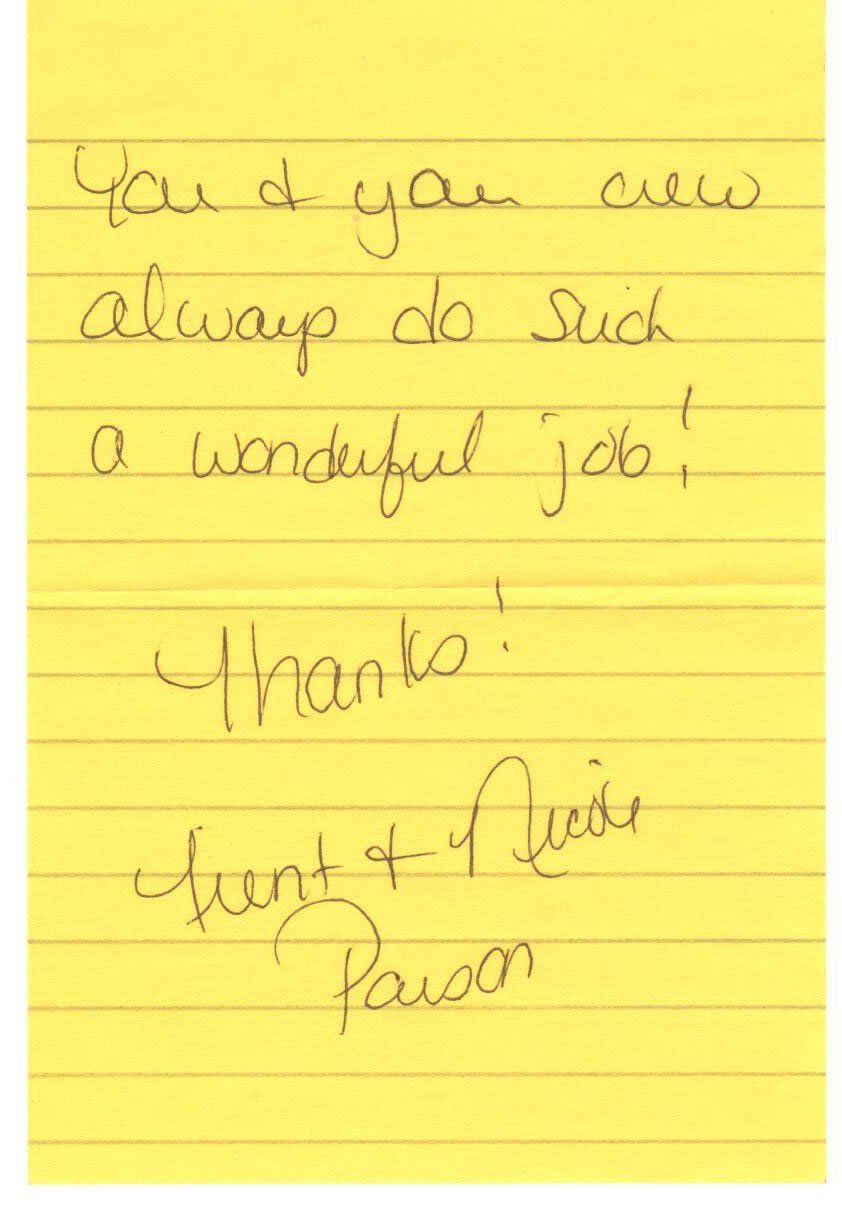 You & your crew
always do such
a wonderful job!
Thanks!
Trent & Nicole
Parson